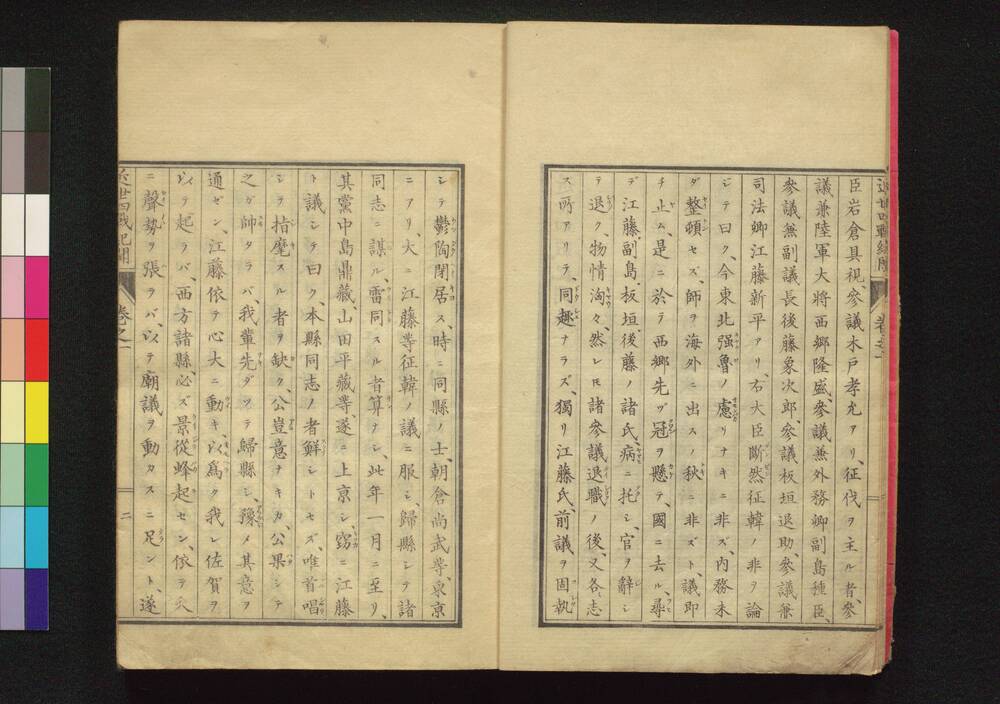 臣岩倉具視、參議木戸孝允ヲリ、征伐ヲ主ル者、參
議兼陸軍大將西郷隆盛、參議兼外務卿副島種臣、
參議兼副議長後藤象次郎、參議板垣退助參議兼
司法卿江藤新平アリ、右大臣斷然征韓ノ非ヲ論
ジテ曰ク、今東北強魯ノ慮リナキニ非ズ、内務未
ダ整頓セズ、師ヲ海外ニ出スノ秋ニ非ズト、議即
チ止ム、是ニ於テ西郷先ヅ冠ヲ懸テ、國ニ去ル、尋
デ江藤副島、板垣、後藤ノ諸氏、病ニ托シ、官ヲ辭シ
テ退ク、物情洶々、然レ𪜈諸參議退職ノ後、又各志
ス所アリテ、同趣ナラズ、獨リ江藤氏、前議ヲ固執
シテ鬱陶閉居ス、時ニ同縣ノ士、朝倉尚武等、東京
ニアリ、大ニ江藤等征韓ノ議ニ服シ、歸縣シテ諸
同志ニ謀ル、雷同スル者算ナシ、此年一月ニ至リ、
其黨中島鼎藏、山田平藏等、遂ニ上京シ、窃ニ江藤
ト議シテ曰ク、本縣同志ノ者鮮シトセズ、唯首唱
シテ指麾スル者ヲ缺ク、公豈意ナキカ、公果シテ
之ガ帥タラバ、我輩先ダツテ歸縣シ、豫メ其意ヲ
通ゼン、江藤依テ心大ニ動キ、以爲ク我レ佐賀ヲ
以テ起ラバ、西方諸縣必ズ景從蜂起セン、依テ
ニ聲勢ヲ張ラバ、以テ廟議ヲ動カスニ足ント、遂
卷之一
二